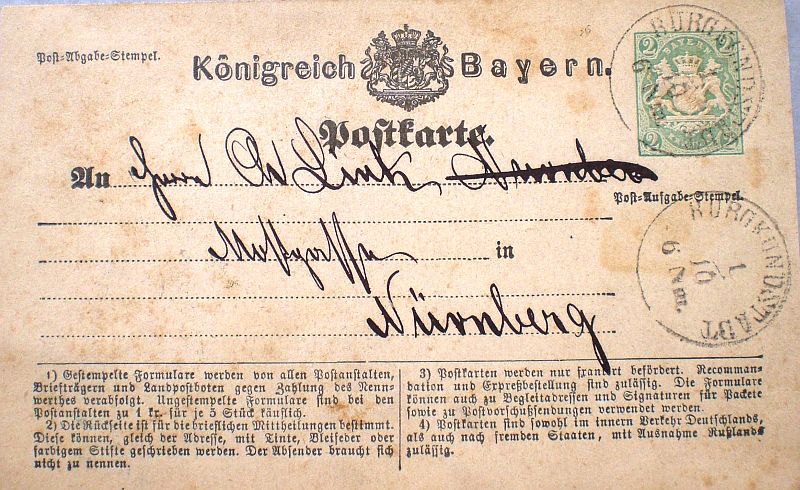 Post=Abgabe=Stempel.
Königreich Bayern.
Postkarte.
2 2
BAYERN
BURGKUNDSTADT
1
10
6 Nm.
An Herrn Ch Link Nürnberg
Post=Aufgabe=Stempel.
in
Nürnberg
BURGKUNDSTADT
1
10
6 Nm.
1) Gestempelte Formulare werden von allen Postanstalten,
Briefträgern und Landpostboten gegen Zahlung des Nenn-
werthes verabfolgt. Ungestempelte Formulare sind bei den
Postanstalten zu 1 kr. für je 5 Stück käuflich.
2) Die Rückseite ist für die brieflichen Mittheilungen bestimmt.
Diese können, gleich der Adresse, mit Tinte, Bleifeder oder
farbigem Stifte geschrieben werden. Der Absender braucht sich
nicht zu nennen.
3) Postkarten werden nur frankirt befördert. Recomman-
dation und Expreßbestellung sind zulässig. Die Formulare
können auch zu Begleitadressen und Signaturen für Packete
sowie zu Postvorschußsendungen verwendet werden.
4) Postkarten sind sowohl im innern Verkehr Deutschlands,
als auch nach fremden Staaten, mit Ausnahme Rußlands
zulässig.